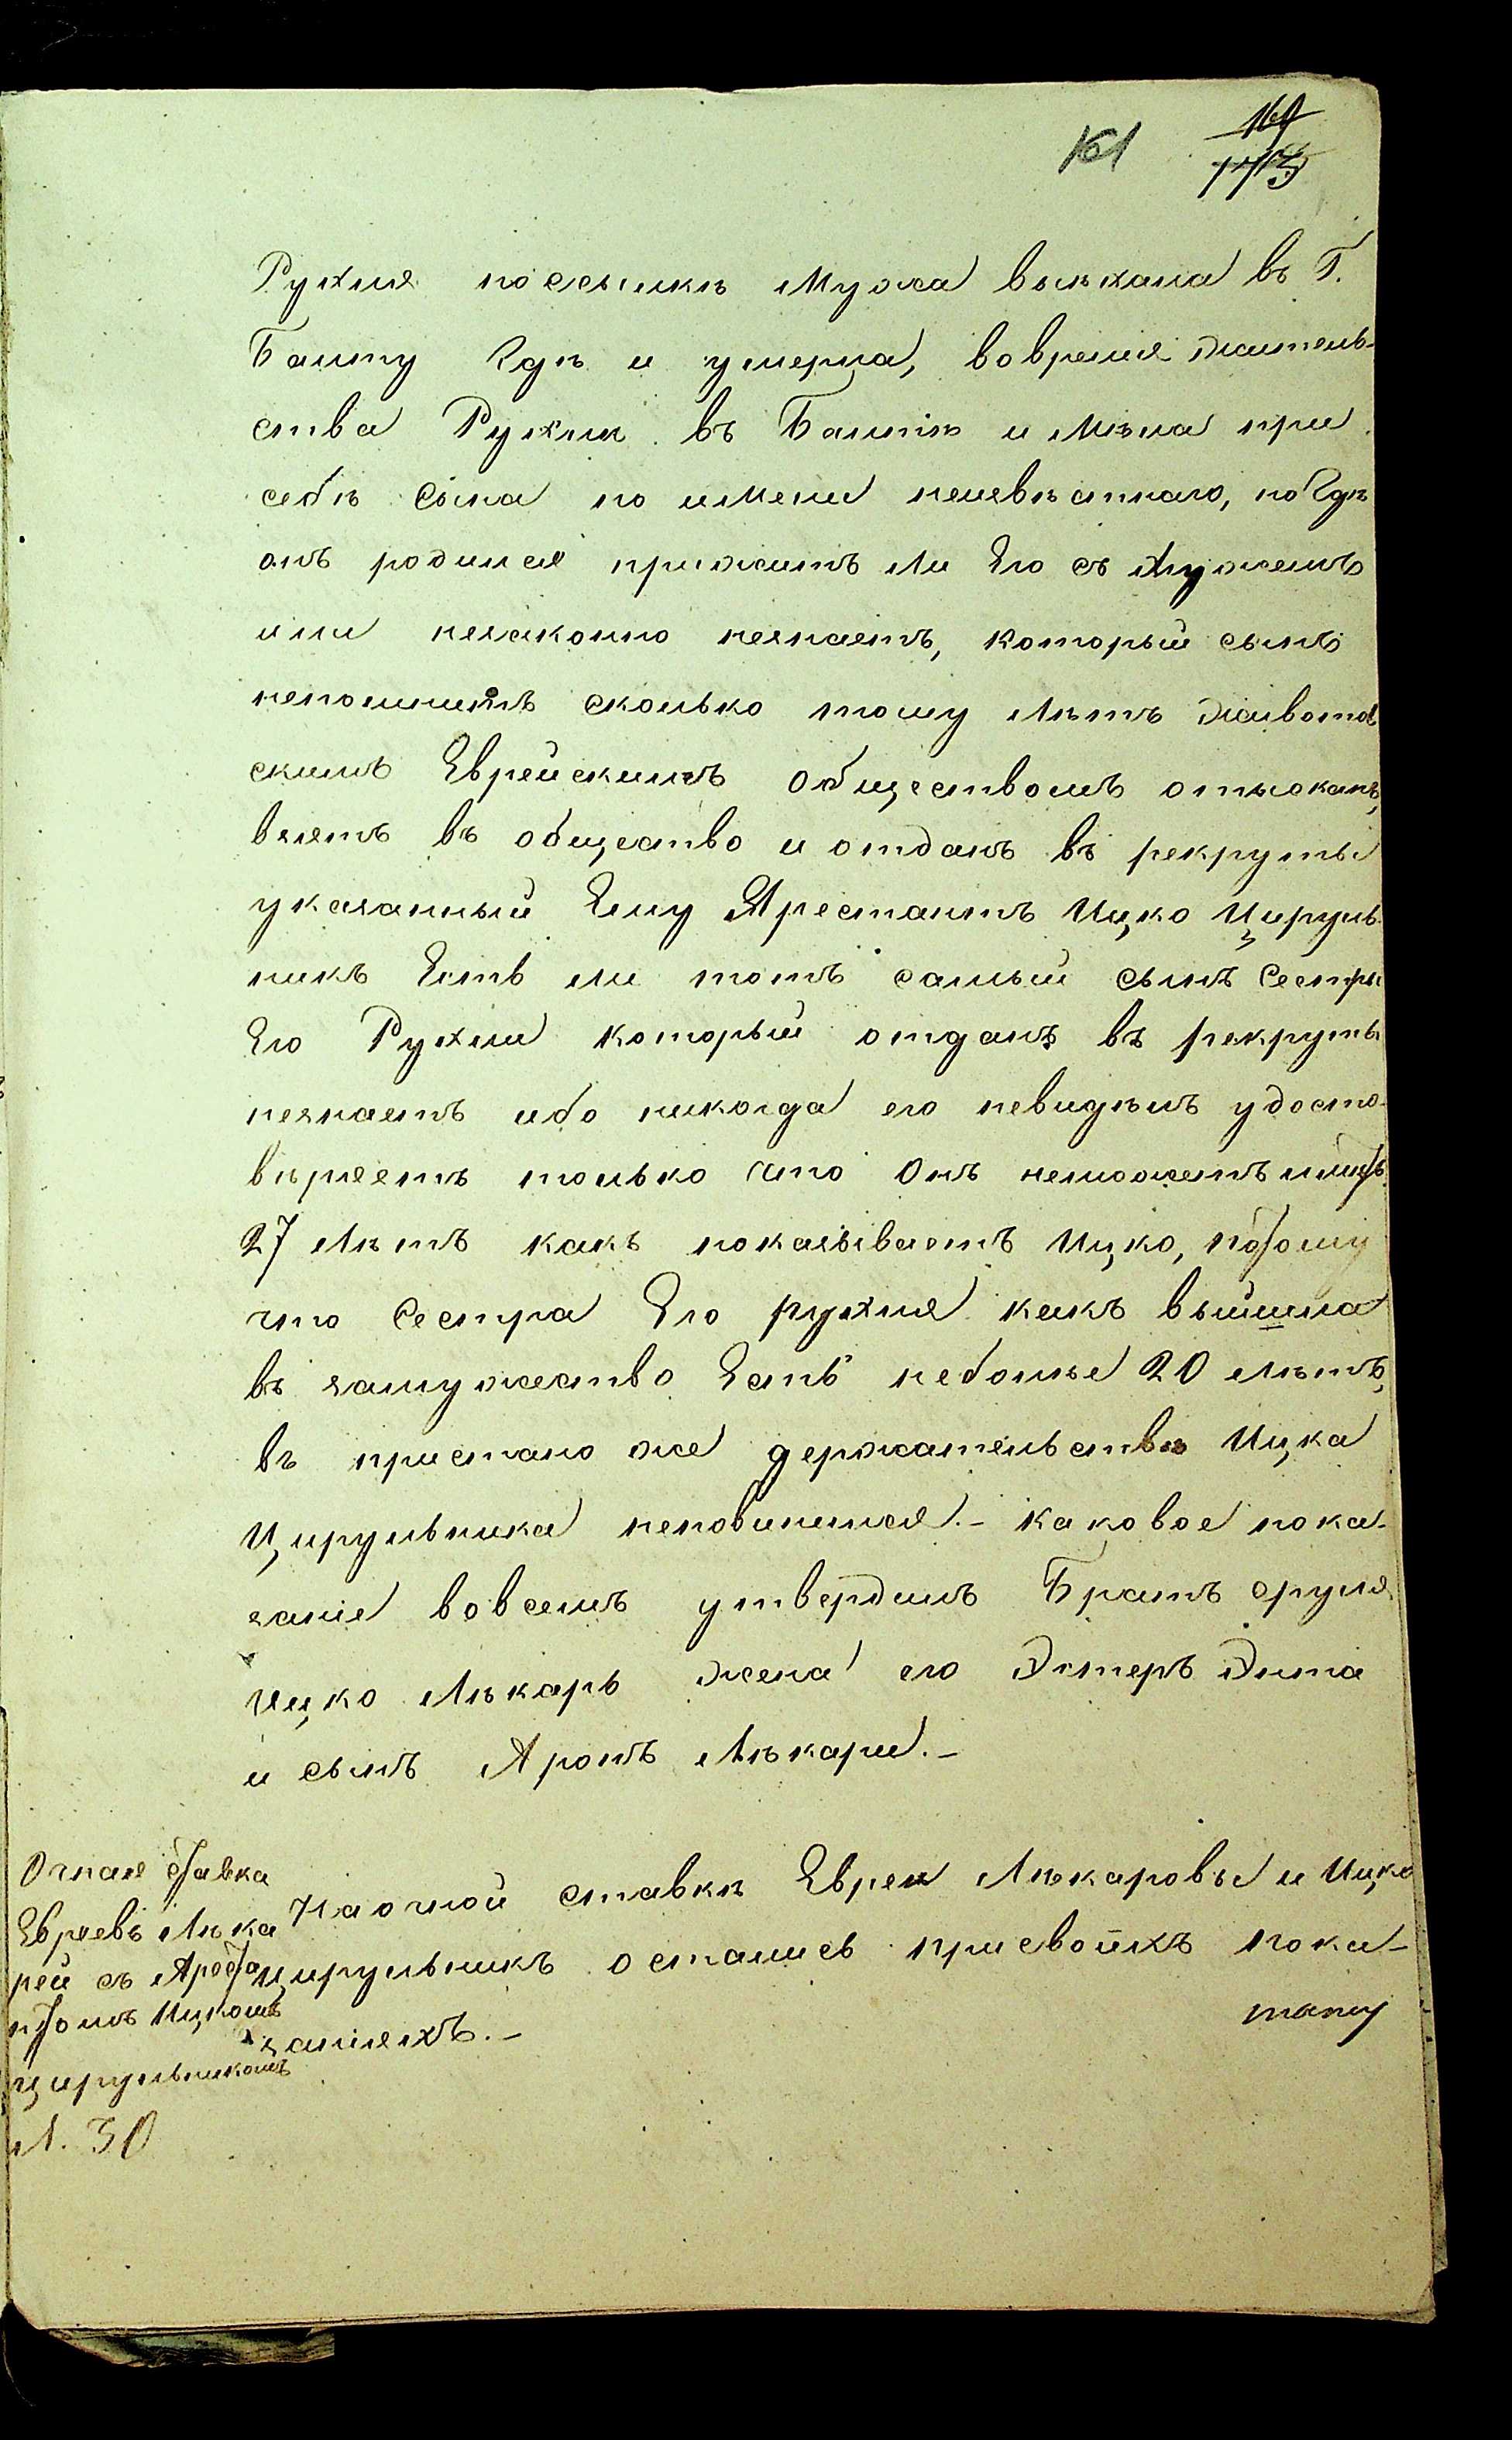 161
169
173
Рухля поссылкѣ мужа выѣхала въ Г.
Балту Гдѣ и умерла, вовремя житель-
ства Рухли въ Балтѣ имѣла при
себѣ сына по имени неизвѣстнаго, но Гдѣ
онъ родился прижитъ ли Его съ мужемъ
или незаконно незнаетъ, который сынъ
непомнитъ сколько тому лѣтъ Животов
скимъ Еврейскимъ обществомъ отысканъ,
взятъ въ общество и отданъ въ рекруты
указанный Ему Арестантъ Ицко Цируль-
никъ Есть ли тотъ самый сынъ Сестры
Его Рухли который отданъ въ рекруты
незнаетъ ибо никогда его невидѣлъ удосто-
вѣряетъ только что Онъ неможетъ имѣть
27 лѣтъ какъ показываетъ Ицко, потому
что Сестра Его Рухля какъ вышла
въ замужество Есть неболѣе 20 лѣтъ,
въ пристано же держательствѣ Ицка
Цирульника неповинился.- каковое пока-
заніе вовсемъ утвердилъ Братъ Сруля
Ицко Лѣкарь жена его Эстеръ Эита
и сынъ Аронъ Лѣкари.-
Очная ставка
Евреевъ Лѣка
рей съ Ареста
нтомъ Ицкомъ
Цирульникомъ
Л. 30
На очной ставкѣ Евреи Лѣкаровы и Ицко
Цирульникъ остались присвоихъ пока-
заніяхъ.-
тану